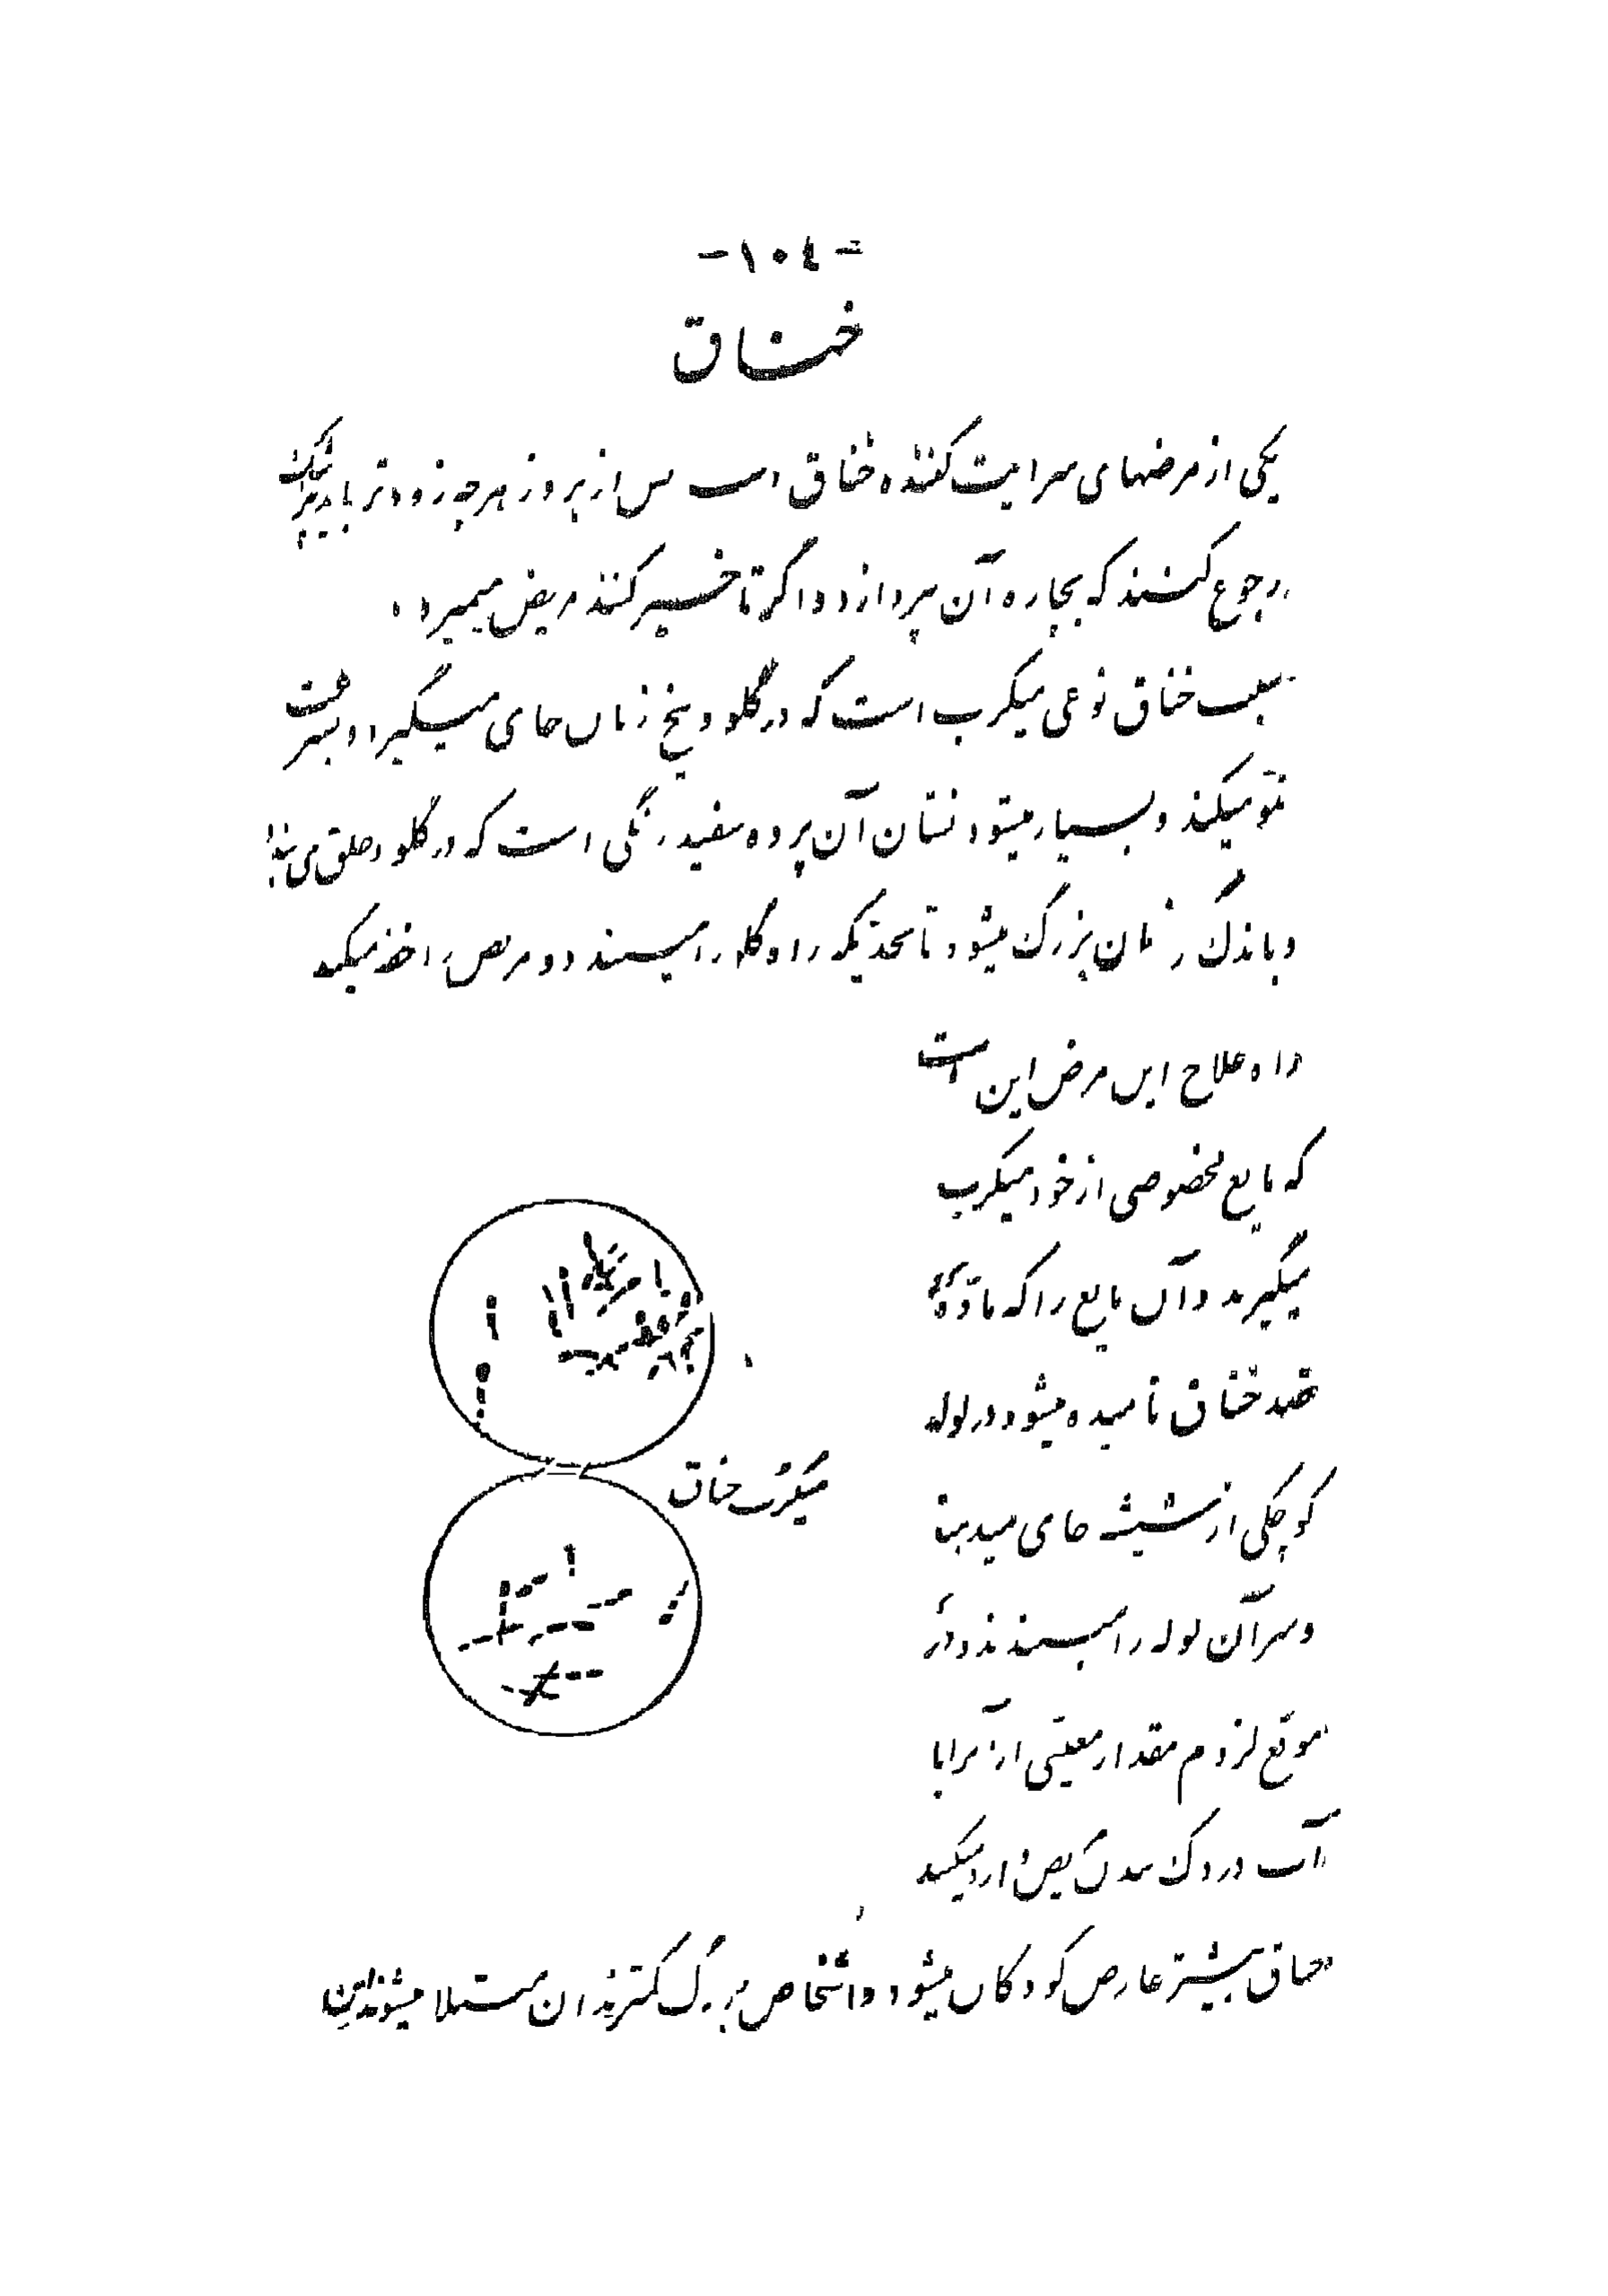 -۱۰٤-
خناق
یکی از مرضهای سرایت کننده خناق است پس از بروز هرچه زودتر باید بپزشک
رجوع کنند که بچاره آن بپردازد و اگر تاخیر کنند مریض میمیرد.
سبب خناق نوعی میکرب است که در گلو و بیخ زبان جای میگیرد و بسرعت
نمو میکند و بسیار میشود نشان آن پرده سفید رنگی است که در گلو و حلق می بندد
و باندک زمان بزرگ میشود تا بحدیکه راه گلو را می‌بندد و مریض را خفه میکند
راه علاج این مرض این است
که مایع مخصوصی از خود میکرب
میگیرند و آن مایع را که مادّهٔ
ضد خناق نامیده میشود در لوله
کوچکی از شیشه جای میدهند
و سر آن لوله را می‌بندند و در
موقع لزوم مقدار معینی از آنرا با
آب دزدک ببدن مریض وارد میکنند
میکرب خناق
خناق بیشتر عارض کودکان میشود و اشخاص بزرگ کمتر بدان مبتلا میشوند این